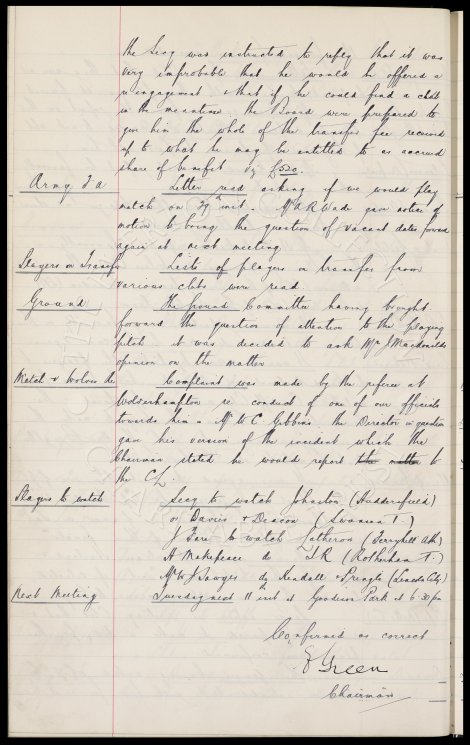 the Secy was instructed to reply that it was
very improbable that he would be offered a
re engagement & that if he could find a club
in the meantime the Board were prepared to
give him the whole of the transfer fee received
up to what he may be entitled to as accrued
share of benefit £520.
Army F A
Letter read asking if we would play
match on inst. Mr A R Wade gave notice of
motion to bring the question of vacant dates forward
again at next meeting
Players on Transfer
Lists of players on transfer from
various clubs were read
Ground
The Ground Committee having brought
forward the question of attention to the playing
pitch it was decided to ask Mr J Macdonalds
opinion on the matter
Match v Wolves
Complaint was made by the referee at
Wolverhampton re conduct of one of our officials
towards him. Mr W C Gibbins the Director in question
gave his version of the incident which the
Chairman stated he would report the matter to
the
Players to watch
Secy to watch Johnston (Huddersfield)
or Davies & Deacon (Swansea T.)
J Fare to watch Letheron (Ferryhill Ath)
A Makepeace do I.R (Rotherham T.)
Mr W J Sawyer do Kendall & Pringle (Lincoln City)
Next Meeting
Tuesday next 11 inst at Goodison Park at 6-30 pm
Confirmed as correct
E Green
Chairman